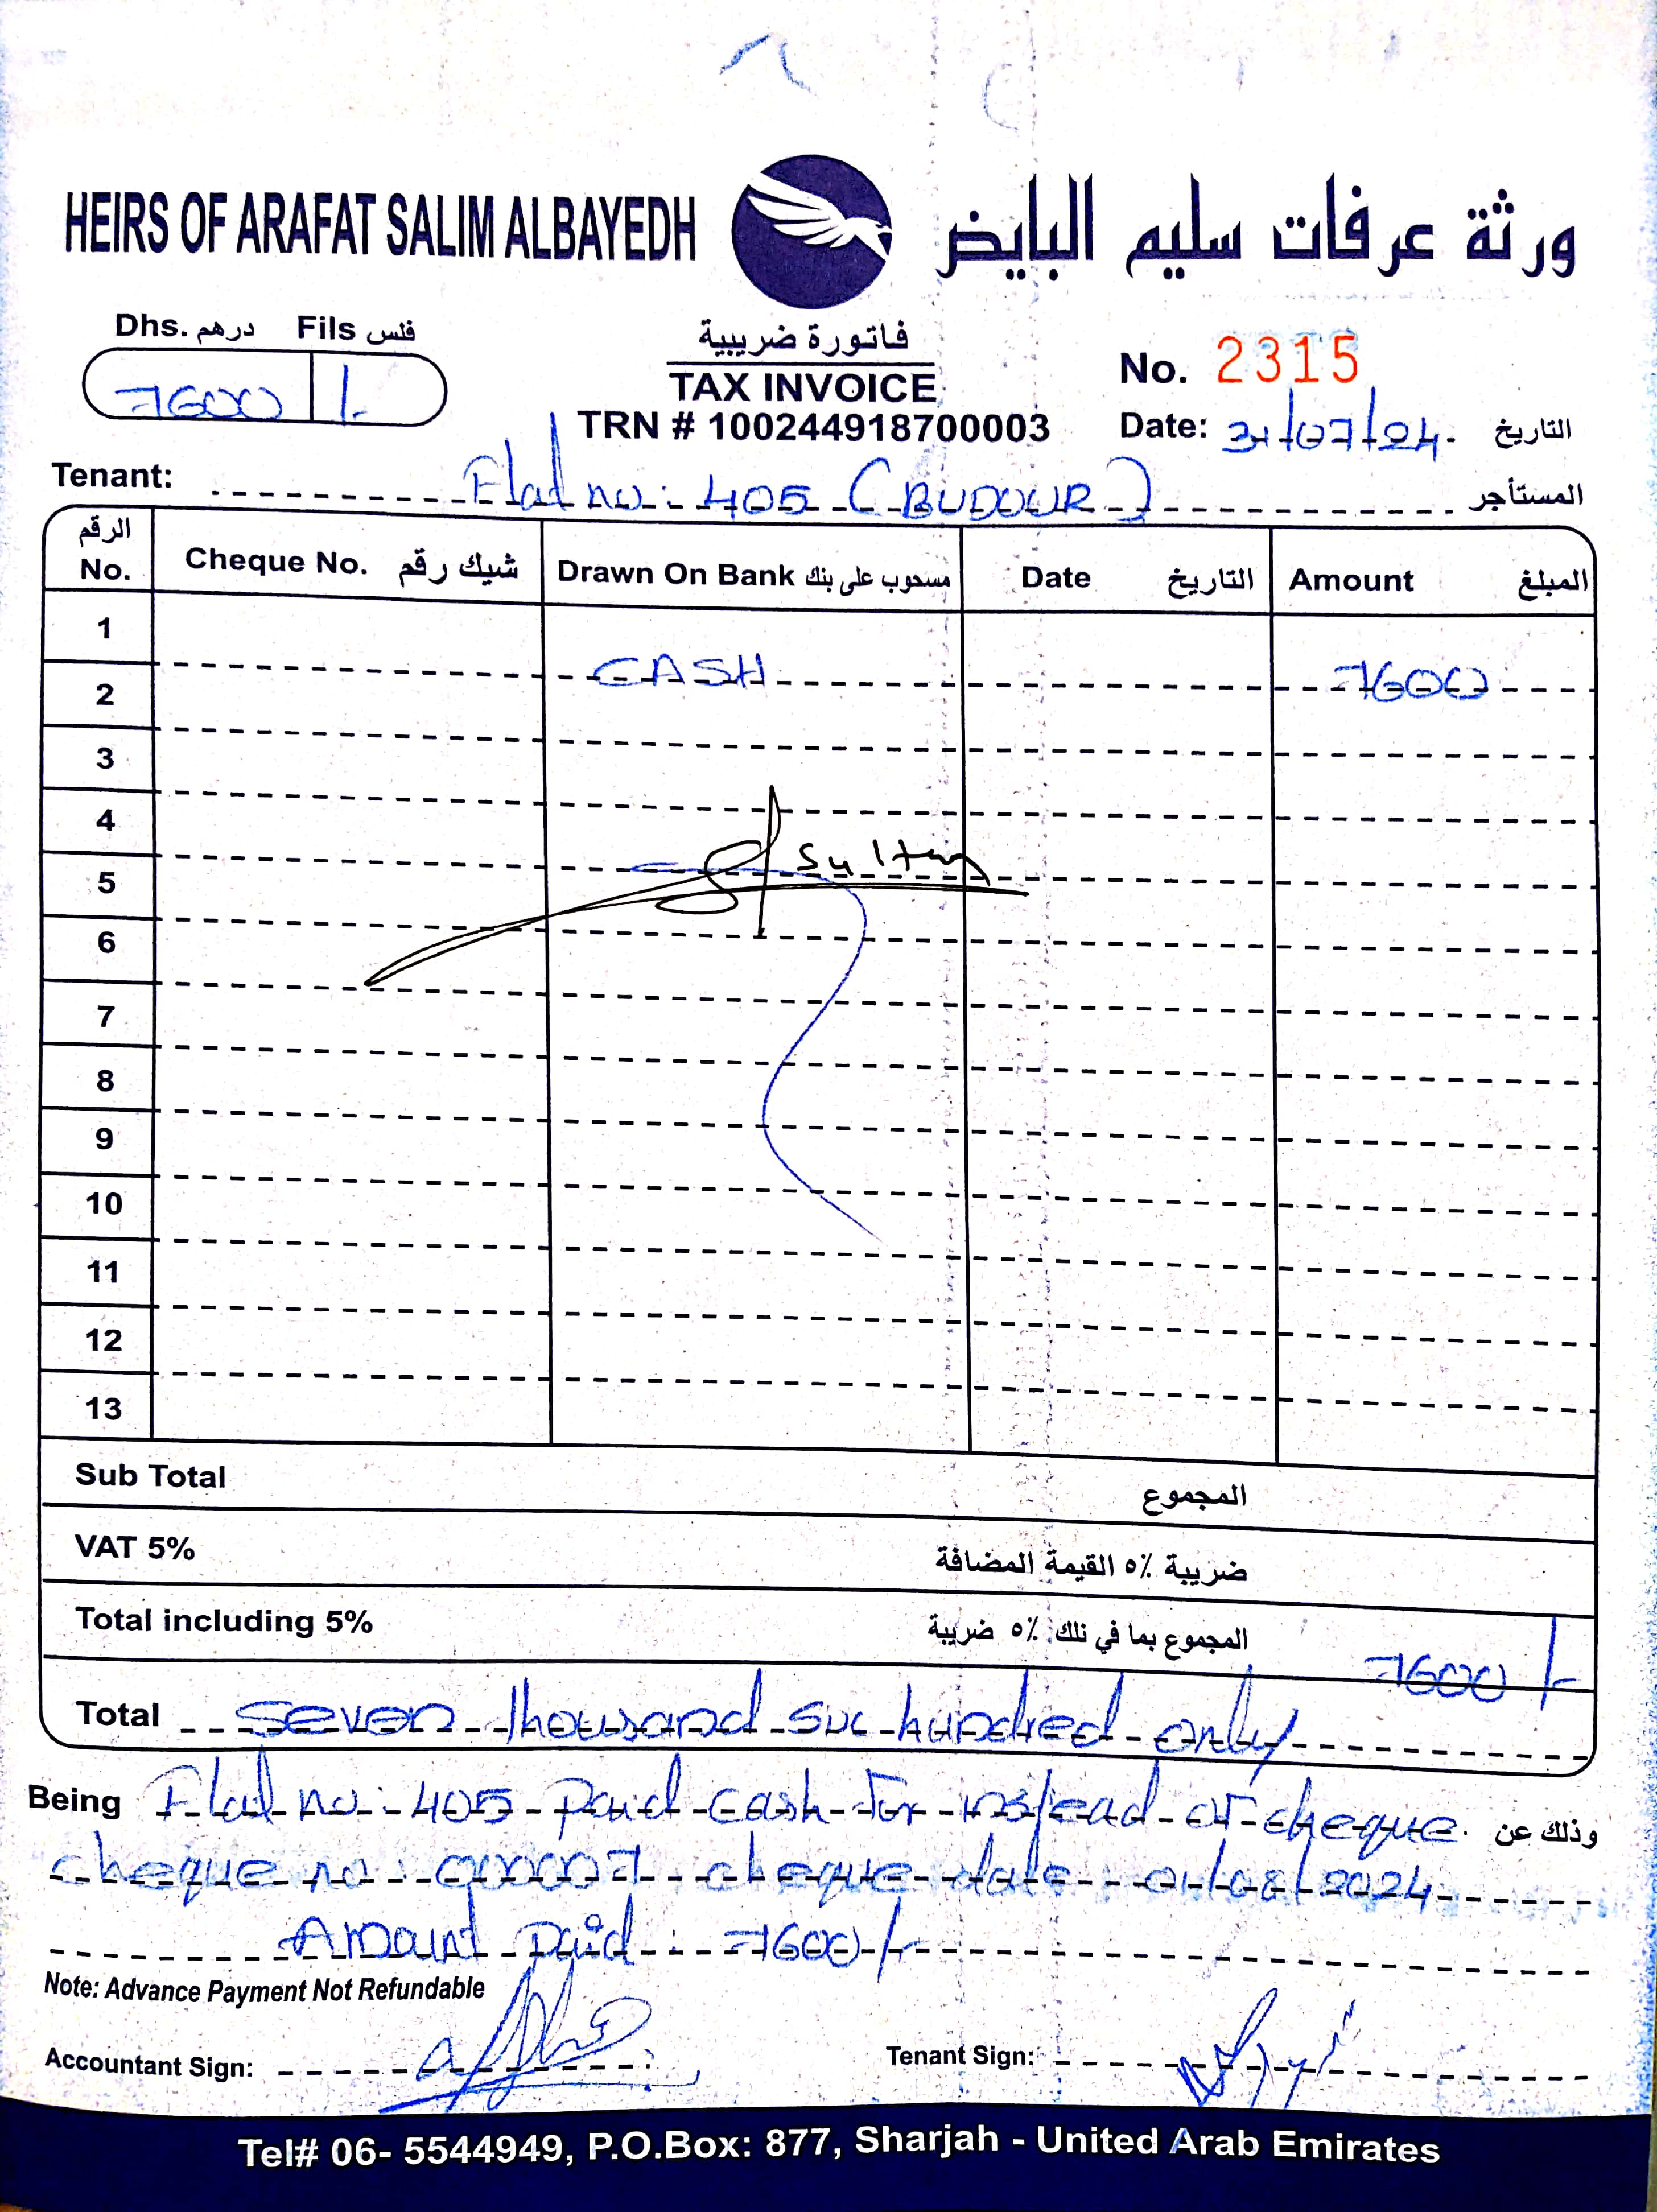 HEIRS OF ARAFAT SALIM ALBAYEDH ورثة عرفات سليم البايض
Dhs. درهم Fils فلس
7600 /-
فاتورة ضريبية
TAX INVOICE
TRN # 100244918700003
No. 2315
Date: 31/07/24 التاريخ
Tenant: Flat no: 405 (BUDOUR) المستأجر
الرقم No. Cheque No. شيك رقم Drawn On Bank مسحوب على بنك Date التاريخ Amount المبلغ
1
2 CASH 7600
3
4
5 Sultan
6
7
8
9
10
11
12
13
Sub Total المجموع
VAT 5% ضريبة ٥٪ القيمة المضافة
Total including 5% المجموع بما في ذلك ٥٪ ضريبة 7600/-
Total Seven thousand six hundred only
Being Flat no: 405 paid cash for instead of cheque وذلك عن
cheque no: 000007 cheque date: 01/08/2024
Amount paid: 7600/-
Note: Advance Payment Not Refundable
Accountant Sign: Tenant Sign:
Tel# 06- 5544949, P.O.Box: 877, Sharjah - United Arab Emirates